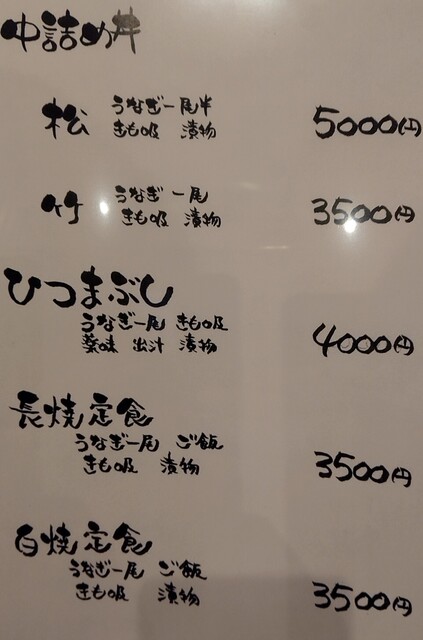 中詰め丼
松 うなぎ一尾半
きも吸 漬物 5000円
竹 うなぎ一尾
きも吸 漬物 3500円
ひつまぶし
うなぎ一尾 きも吸
薬味 出汁 漬物 4000円
長焼定食
うなぎ一尾 ご飯
きも吸 漬物 3500円
白焼定食
うなぎ一尾 ご飯
きも吸 漬物 3500円